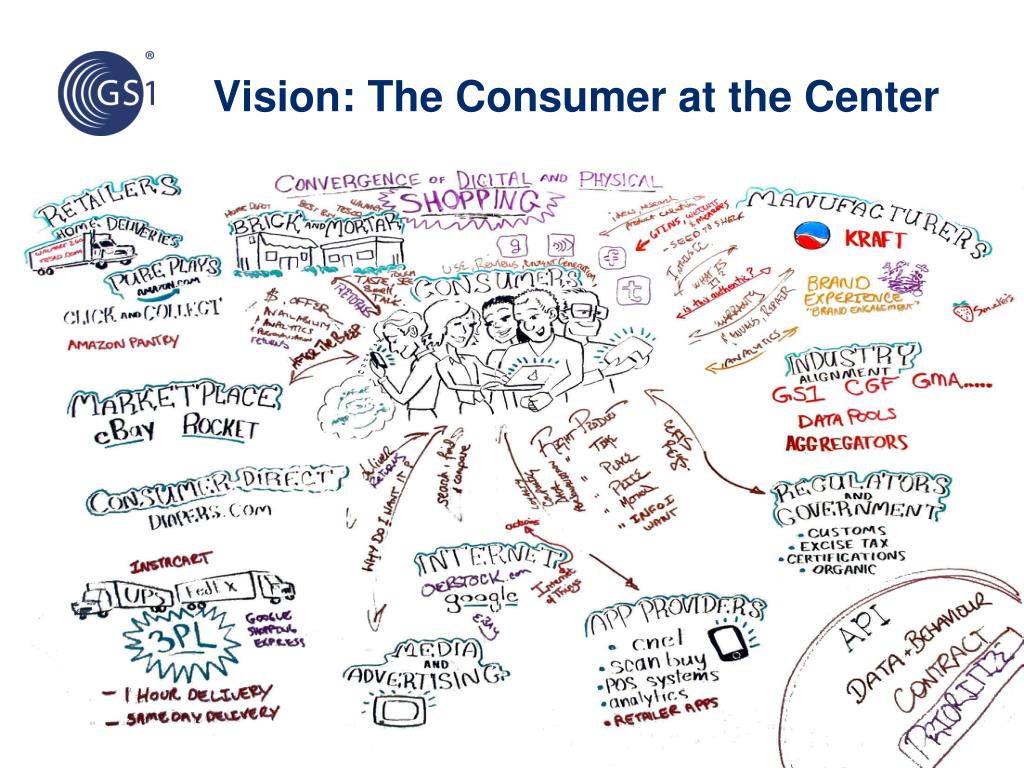 GS1
®
Vision: The Consumer at the Center
CONVERGENCE OF DIGITAL AND PHYSICAL
SHOPPING
RETAILERS
HOME DELIVERIES
TESCO.COM
PURE PLAYS
AMAZON.COM
CLICK AND COLLECT
AMAZON PANTRY
HOME DEPOT
BEST BUY
TESCO
WALMART
BRICK AND MORTAR
TOUCH
TASTE SEE
SMELL
TALK
RETURNS
$ OFFER
AVAILABILITY
ANALYTICS
returns
USE, Reviews, Content Generation
CONSUMERS
g
f
t
MANUFACTURERS
KRAFT
BRAND
EXPERIENCE
"BRAND ENGAGEMENT"
Smucker's
GTINS, WEIGHT
& MEASURES
- SEED TO SHELF
WHAT'S
IN
IT?
is this authentic?
WARRANTY
MANUALS, REPAIR
ANALYTICS
INDUSTRY
ALIGNMENT
GS1 CGF GMA......
DATA POOLS
AGGREGATORS
MARKETPLACE
eBay ROCKET
CONSUMER DIRECT
DIAPERS.COM
deliver
RETURNS
WHY DO I WANT IT?
search, find
& compare
RIGHT PRODUCT
" TIME
" PLACE
" PRICE
" INFO I
WANT
REGULATORS
AND
GOVERNMENT
• CUSTOMS
• EXCISE TAX
• CERTIFICATIONS
• ORGANIC
INSTACART
UPS FedEx
3PL
GOOGLE
SHOPPING
EXPRESS
- 1 HOUR DELIVERY
- SAME DAY DELIVERY
INTERNET
OERSTOCK.com
google
EBAY
Internet
of Things
MEDIA
AND
ADVERTISING
APP PROVIDERS
• cnet
• scan buy
• POS systems
• analytics
• RETAILER APPS
API
DATA + BEHAVIOUR
CONTRACT
PRIORITIZE